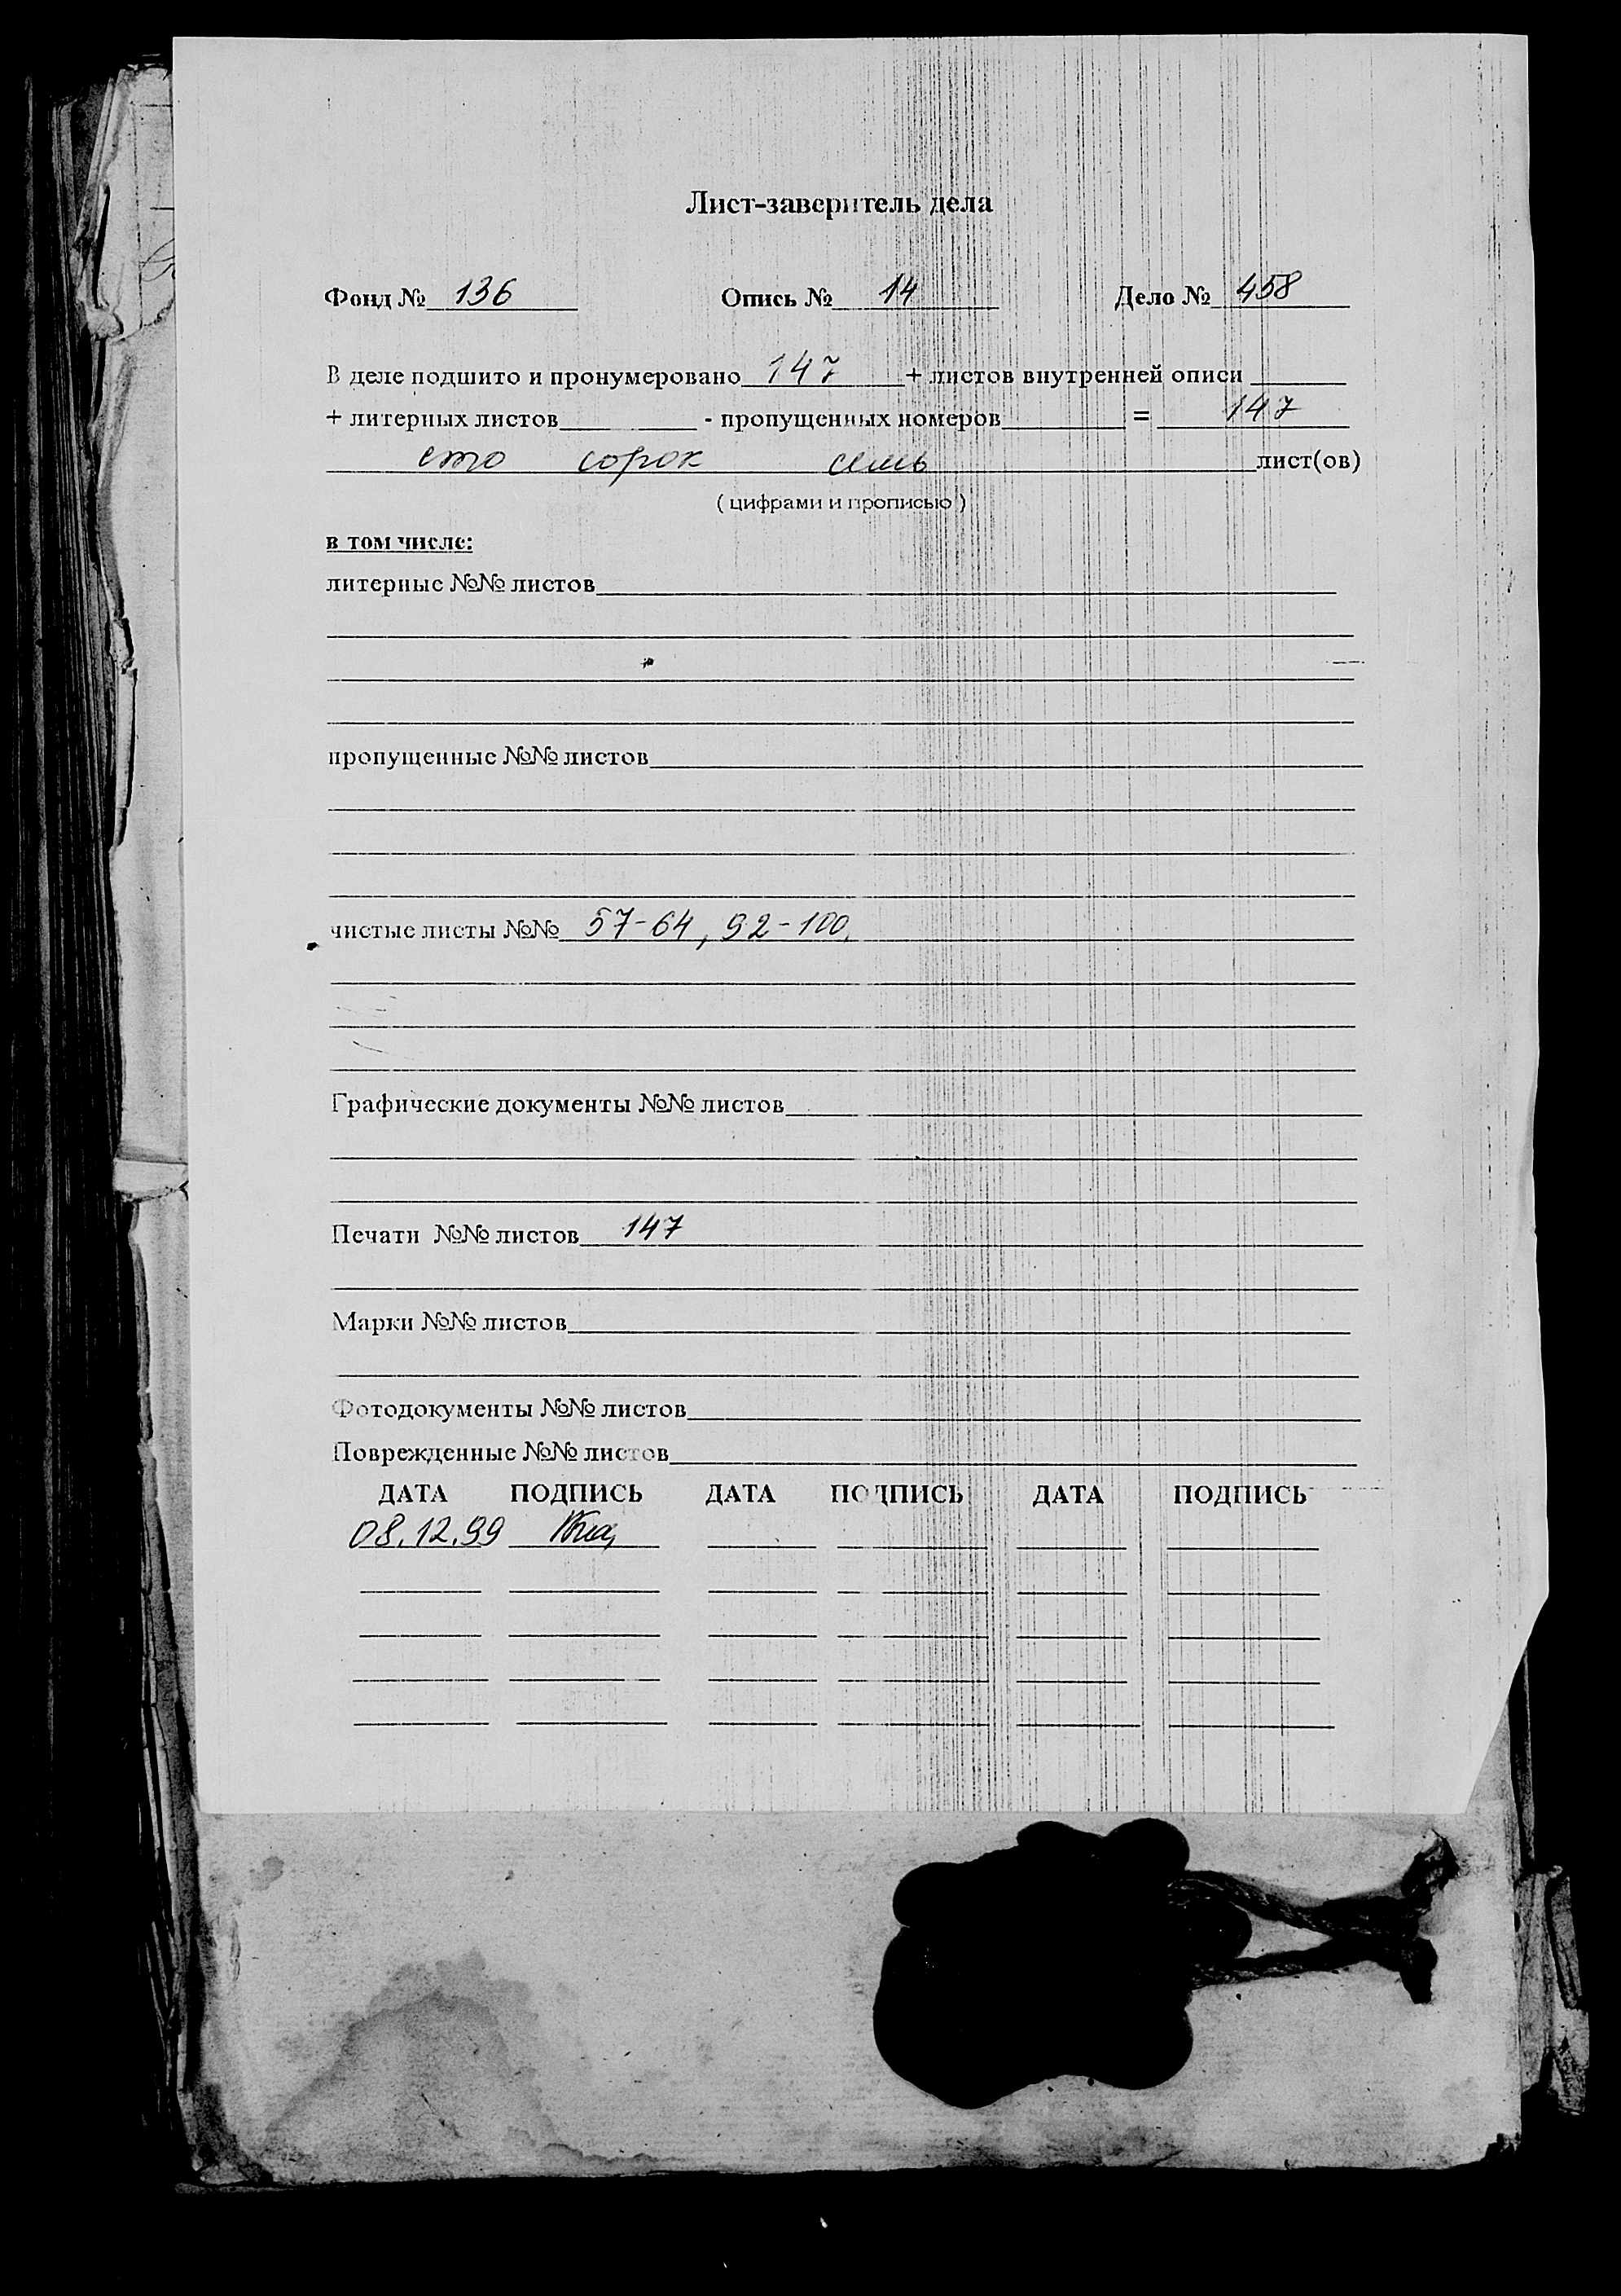 Лист-заверитель дела
Фонд № 136 Опись № 14 Дело № 458
В деле подшито и пронумеровано 147 + листов внутренней описи
+ литерных листов - пропущенных номеров = 147
сто сорок семь лист(ов)
( цифрами и прописью )
в том числе:
литерные №№ листов
пропущенные №№ листов
чистые листы №№ 57-64, 92-100,
Графические документы №№ листов
Печати №№ листов 147
Марки №№ листов
Фотодокументы №№ листов
Поврежденные №№ листов
ДАТА ПОДПИСЬ ДАТА ПОДПИСЬ ДАТА ПОДПИСЬ
08.12.99